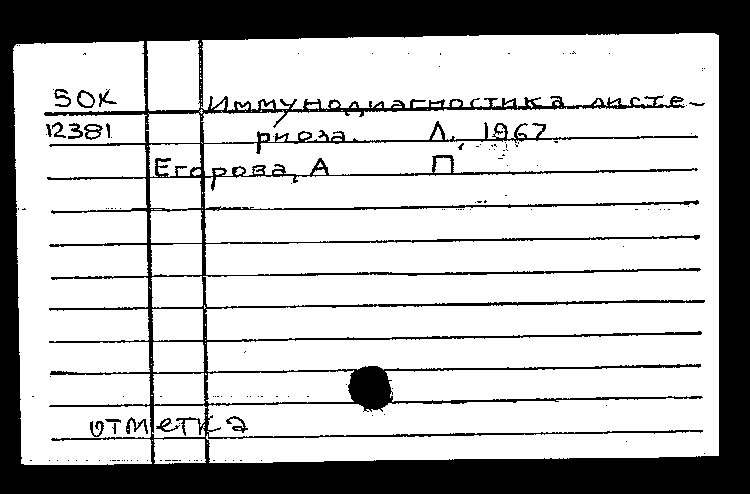 50К Иммунодиагностика листе-
12381 риоза. Л., 1967
Егорова, А П
отметка